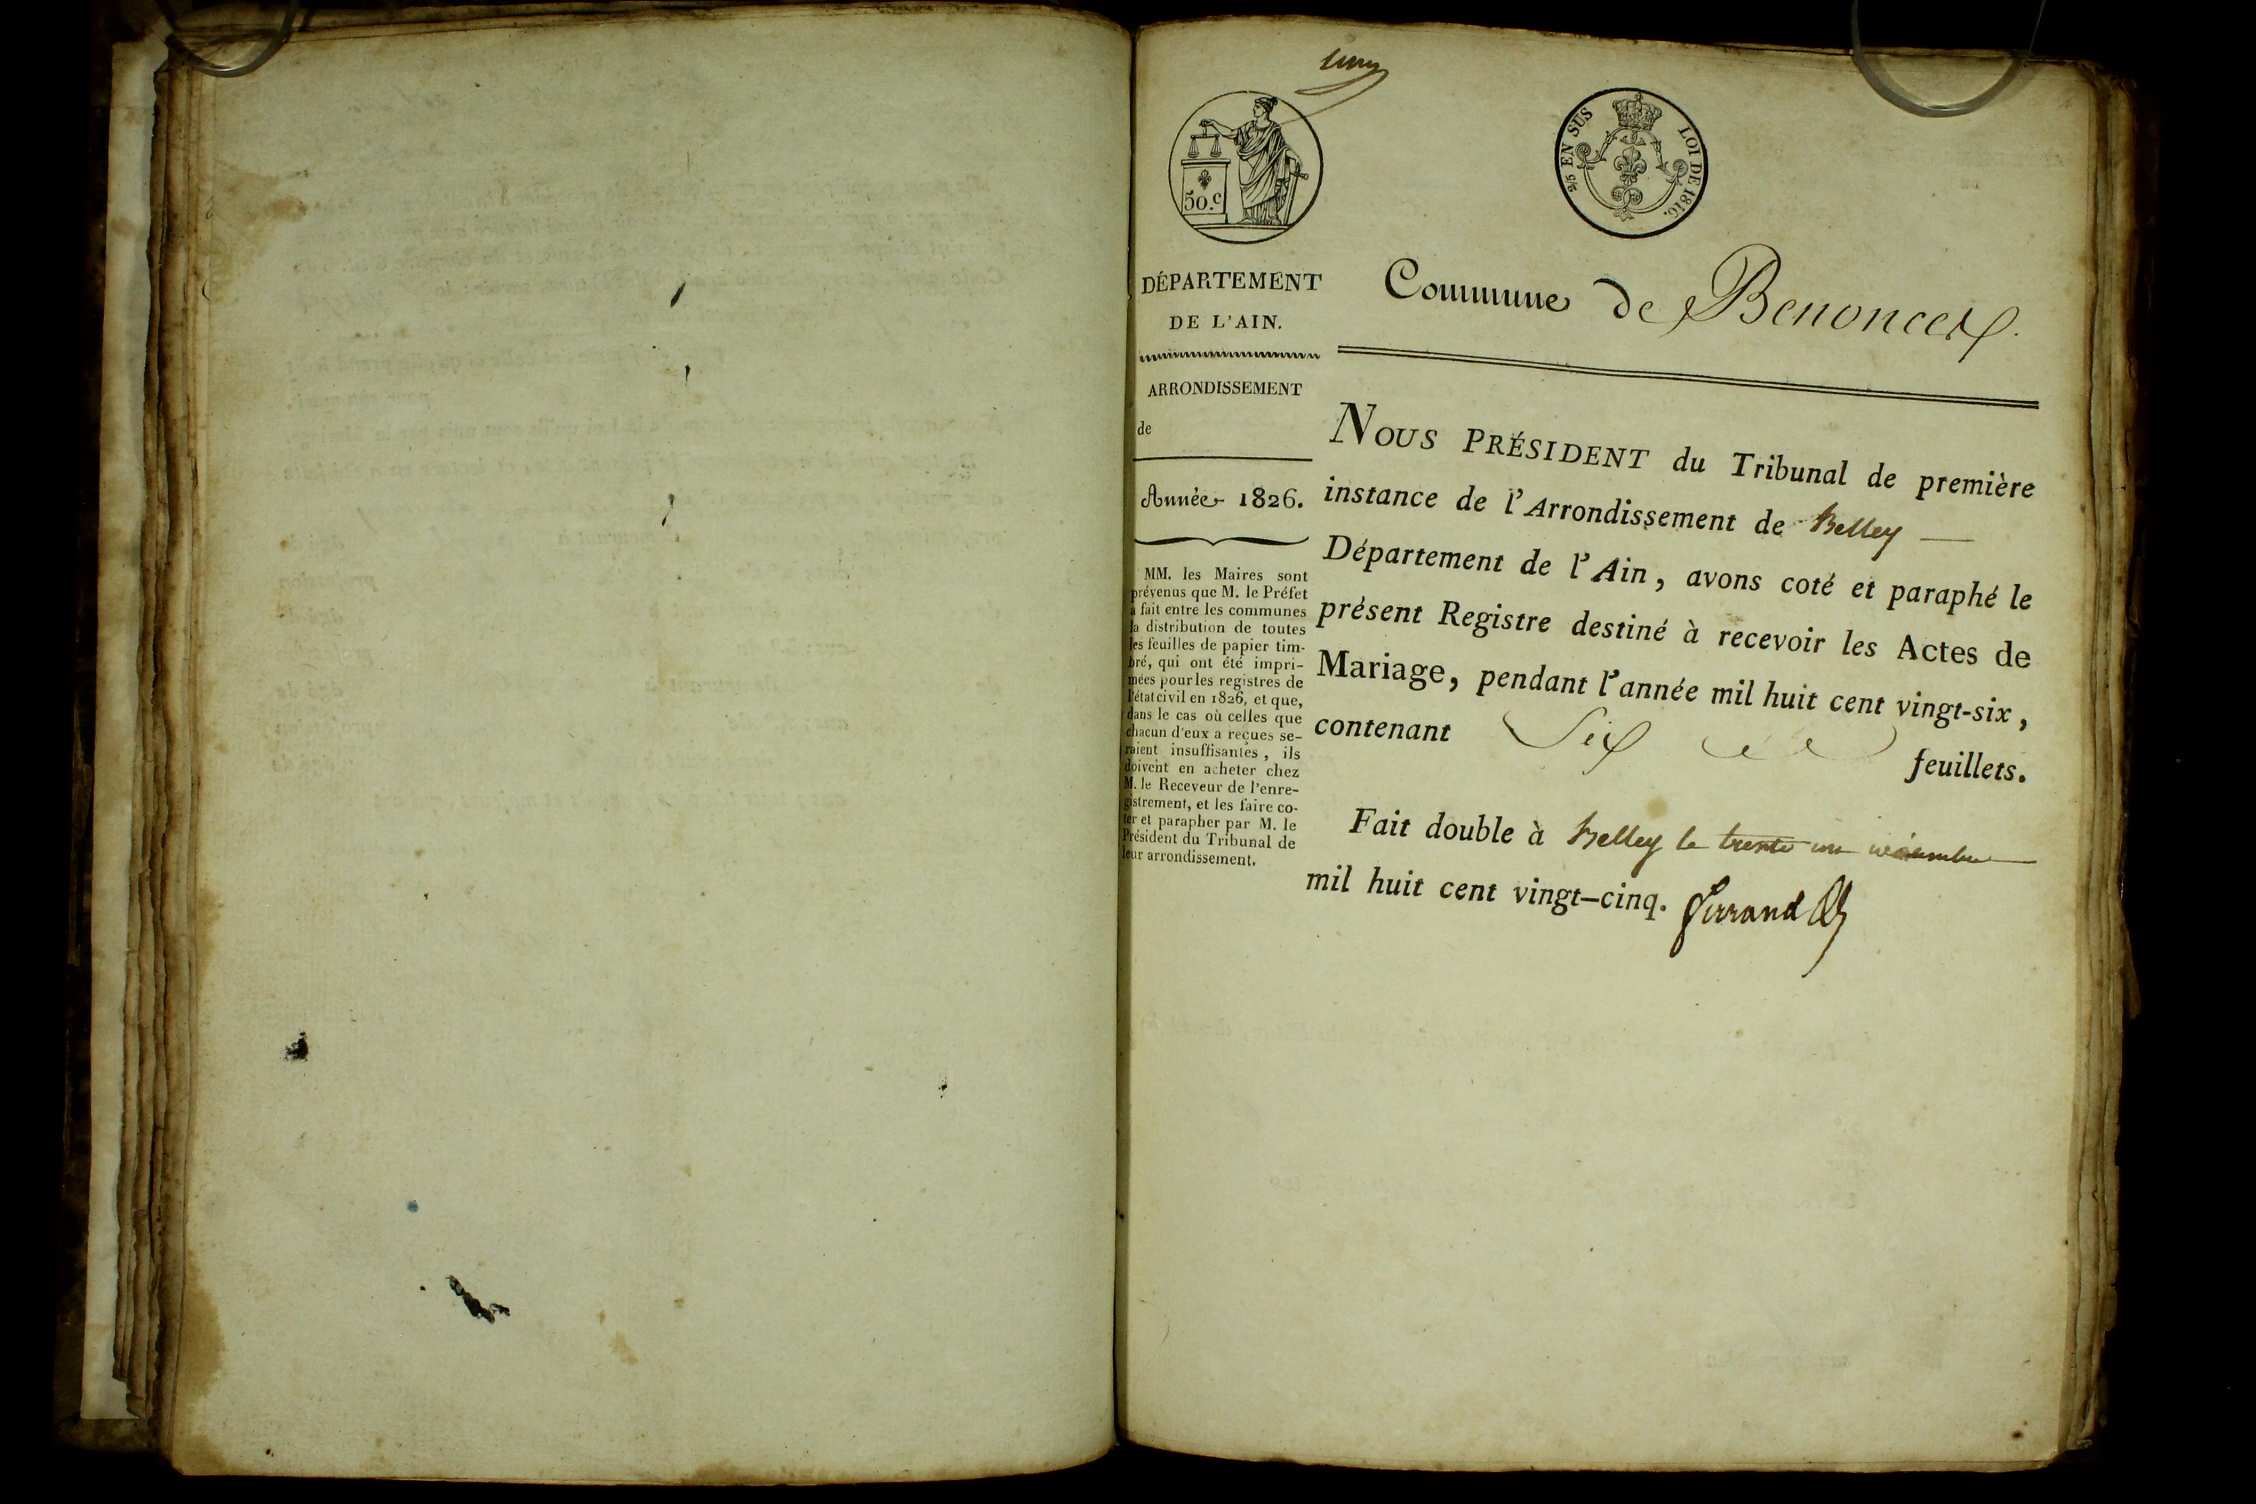 50.c
2/5 EN SUS LOI DE 1816.
DÉPARTEMENT
DE L'AIN.
ARRONDISSEMENT
de
Année 1826.
MM. les Maires sont
prévenus que M. le Préfet
a fait entre les communes
la distribution de toutes
les feuilles de papier tim-
bré, qui ont été impri-
mées pour les registres de
l'état civil en 1826, et que,
dans le cas où celles que
chacun d'eux a reçues se-
raient insuffisantes, ils
doivent en acheter chez
M. le Receveur de l'enre-
gistrement, et les faire co-
ter et parapher par M. le
Président du Tribunal de
leur arrondissement.
Commune de Benonces.
NOUS PRÉSIDENT du Tribunal de première
instance de l'Arrondissement de Belley
Département de l'Ain, avons coté et paraphé le
présent Registre destiné à recevoir les Actes de
Mariage, pendant l'année mil huit cent vingt-six,
contenant Six feuillets.
Fait double à Belley le trente un
mil huit cent vingt-cinq.